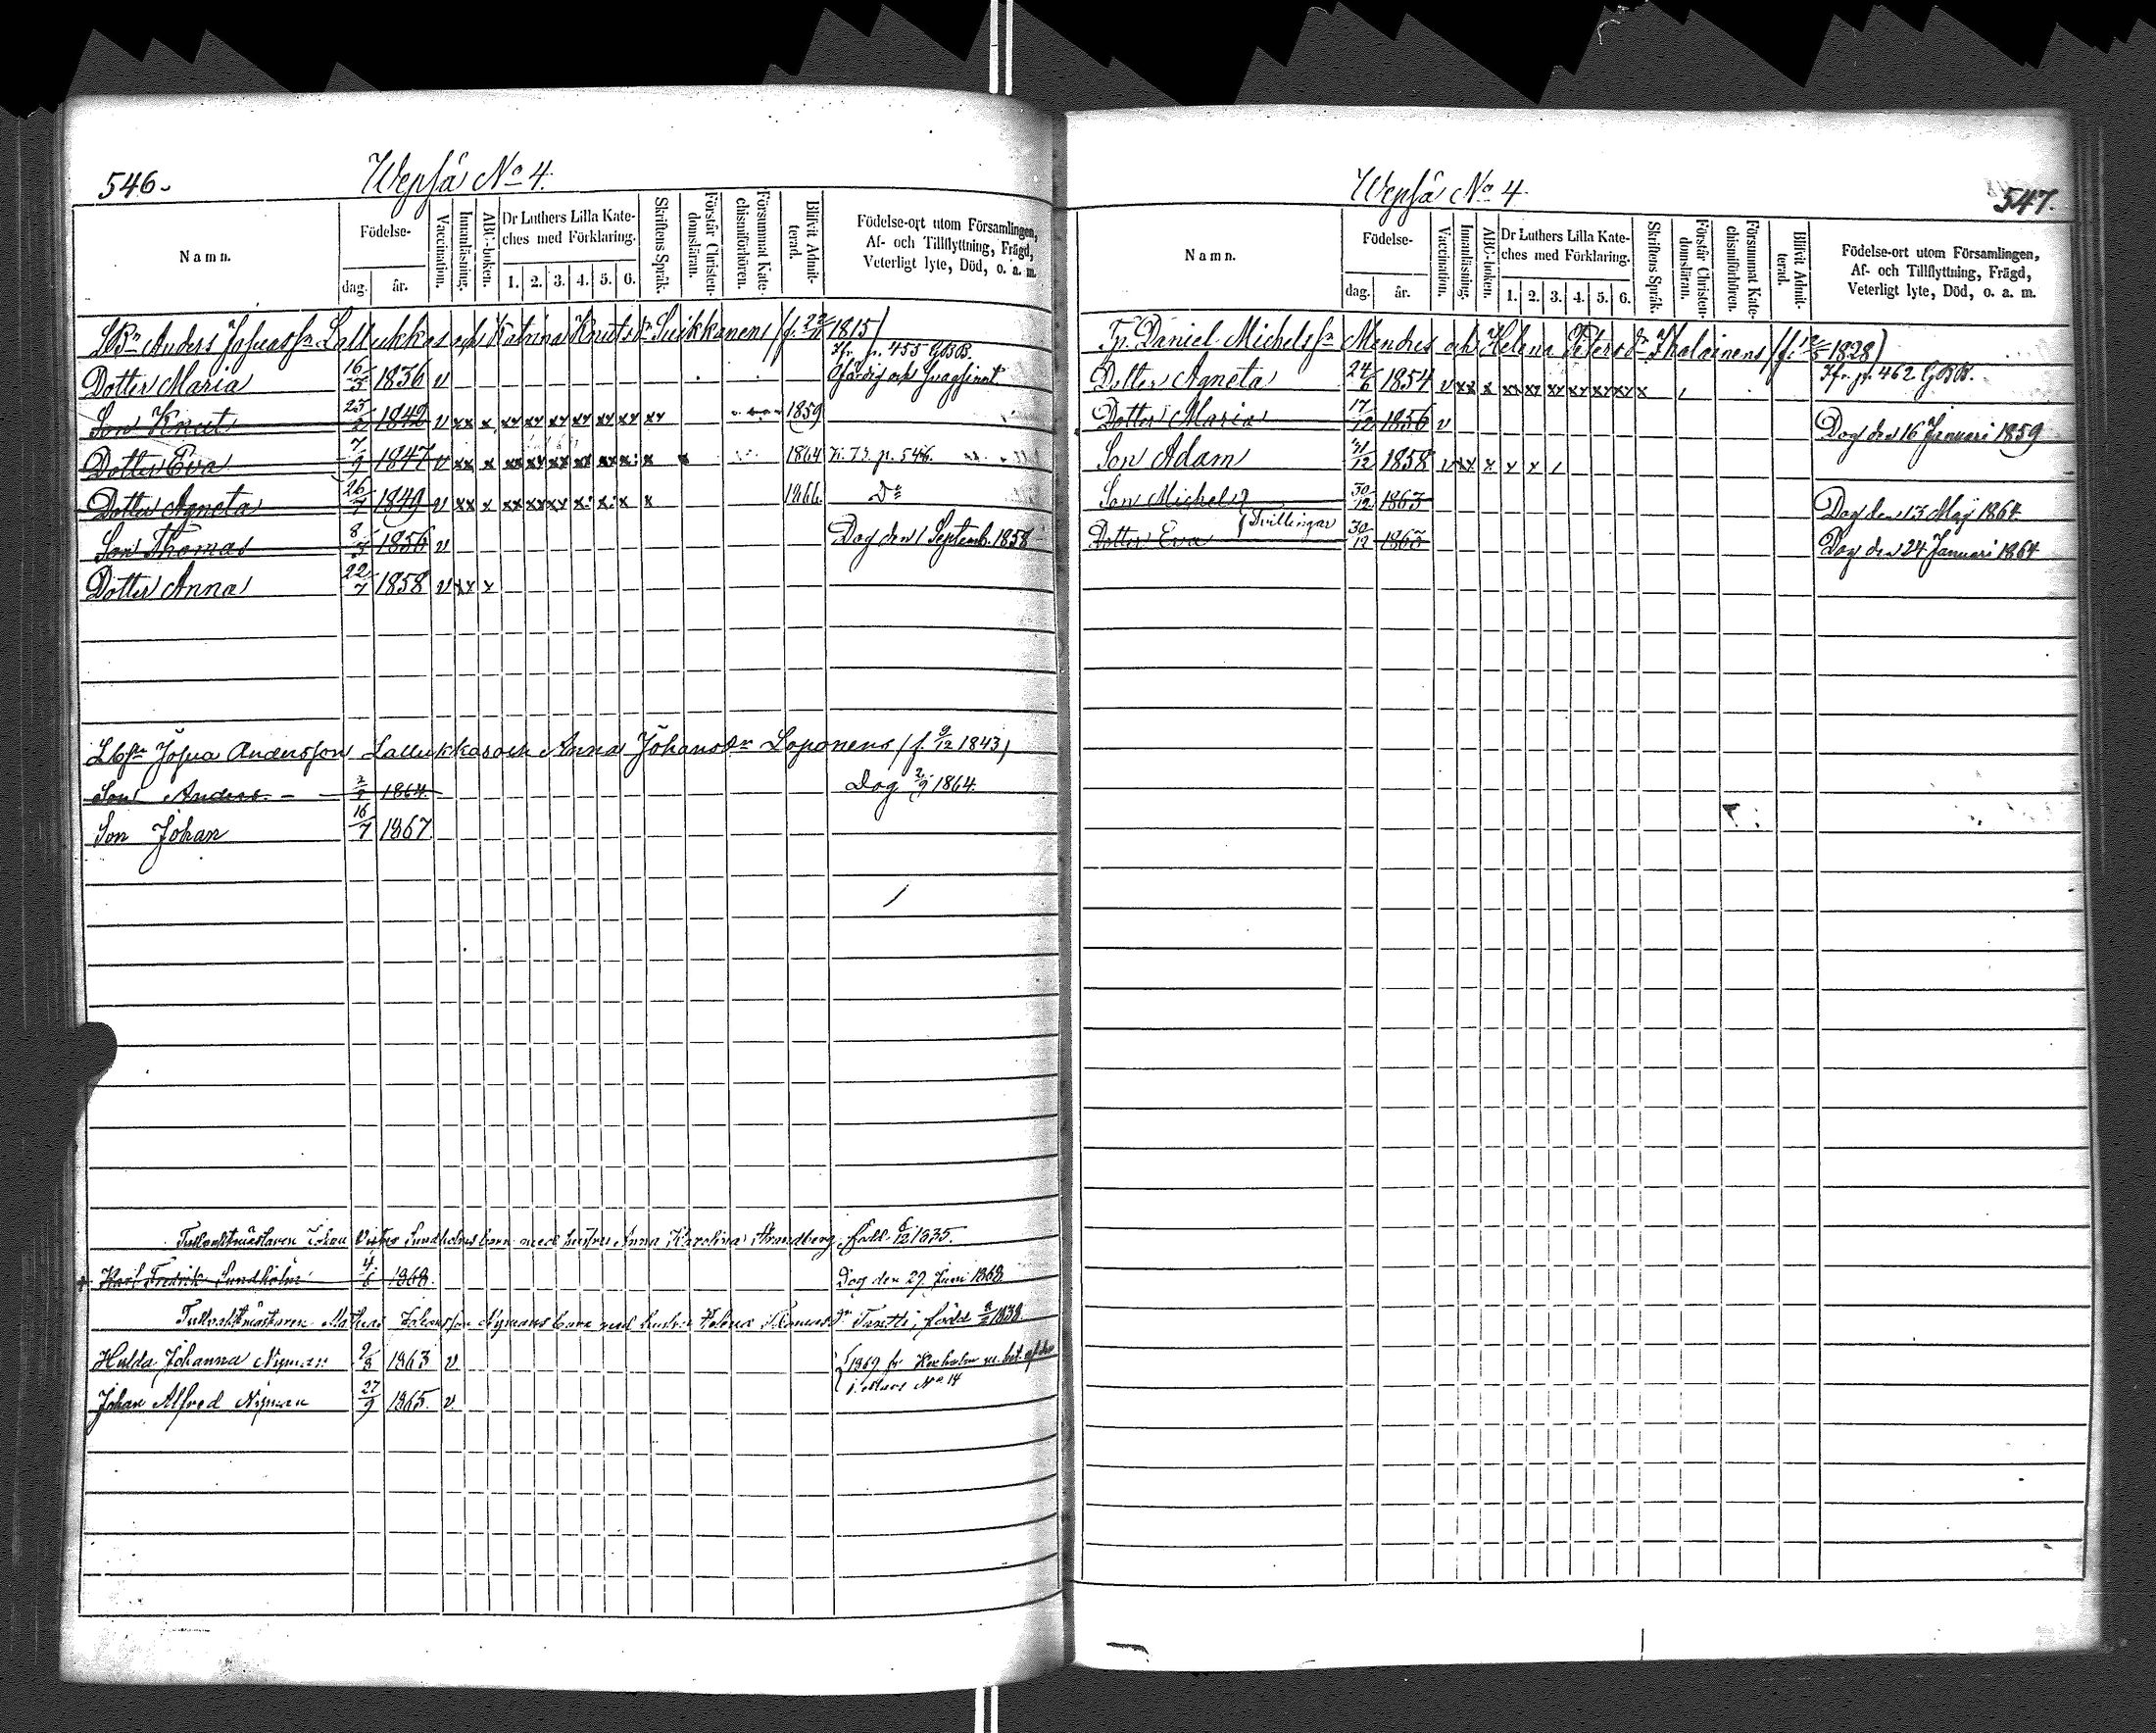 546.
Wepsä No 4.
Namn.
Födelse-
dag.
år.
Vaccination.
Innanläsning.
ABC-boken.
Dr Luthers Lilla Kate-
ches med Förklaring.
1. 2. 3. 4. 5. 6.
Skriftens Språk.
Förstår Christen-
domsläran.
Försummat Kate-
chismiförhören.
Blifvit Admit-
terad.
Födelse-ort utom Församlingen,
Af- och Tillflyttning, Frägd,
Veterligt lyte, Död, o. a. m.
Anders Josuasson Lallukkas och Katrina Knutsdr Suikkanens 1815)
Jfr. p. 455 GBB.
Dotter Maria 16/3 1836 v
Son Knut 1842 v xx x xx xx xx xx xx xx xx 1859
Dotter Eva 7/9 1847 v xx x xx xx xx xx xx x x 1864
Dotter Agneta 26/7 1849 v xx x xx xx xx x x x x 1866 Do
Son Thomas 1856 v Dog den 1 Septemb. 1858
Dotter Anna 22/7 1858 v xx x
Josua Andersson Lallukkas och Anna Johansdr Loponens (f. 9/12 1843)
Son Anders 1864 Dog 2/9 1864.
Son Johan 16/7 1867
Johan Sundholms barn med hustru Anna Karolina Strandberg, född 1835.
Karl Fredrik Sundholm 4/6 1868. Dog den 29 Juni 1868
Johansson Nymans barn med hustru Helena född 1838.
Hulda Johanna Nyman 9/8 1863 v 1869 fr Hexholm m. bet. af den
1 Mars No 14
Johan Alfred Nyman 27/9 1865. v
Wepsä No 4.
547.
Namn.
Födelse-
dag.
år.
Vaccination.
Innanläsning.
ABC-boken.
Dr Luthers Lilla Kate-
ches med Förklaring.
1. 2. 3. 4. 5. 6.
Skriftens Språk.
Förstår Christen-
domsläran.
Försummat Kate-
chismiförhören.
Blifvit Admit-
terad.
Födelse-ort utom Församlingen,
Af- och Tillflyttning, Frägd,
Veterligt lyte, Död, o. a. m.
Daniel Michelsson och Helena Petersdr Ihalainens 1828)
Jfr. p. 462 GBB.
Dotter Agneta 24/6 1854 v xx x xx xx xx xx xx xx x
Dotter Maria 17/12 1856 v Dog den 16 Januari 1859
Son Adam 1858 v xx x x x
Son Michel 30/12 1863 Dog den 13 Maj 1864
Tvillingar
Dotter Eva 30/12 1863 Dog den 24 Januari 1864